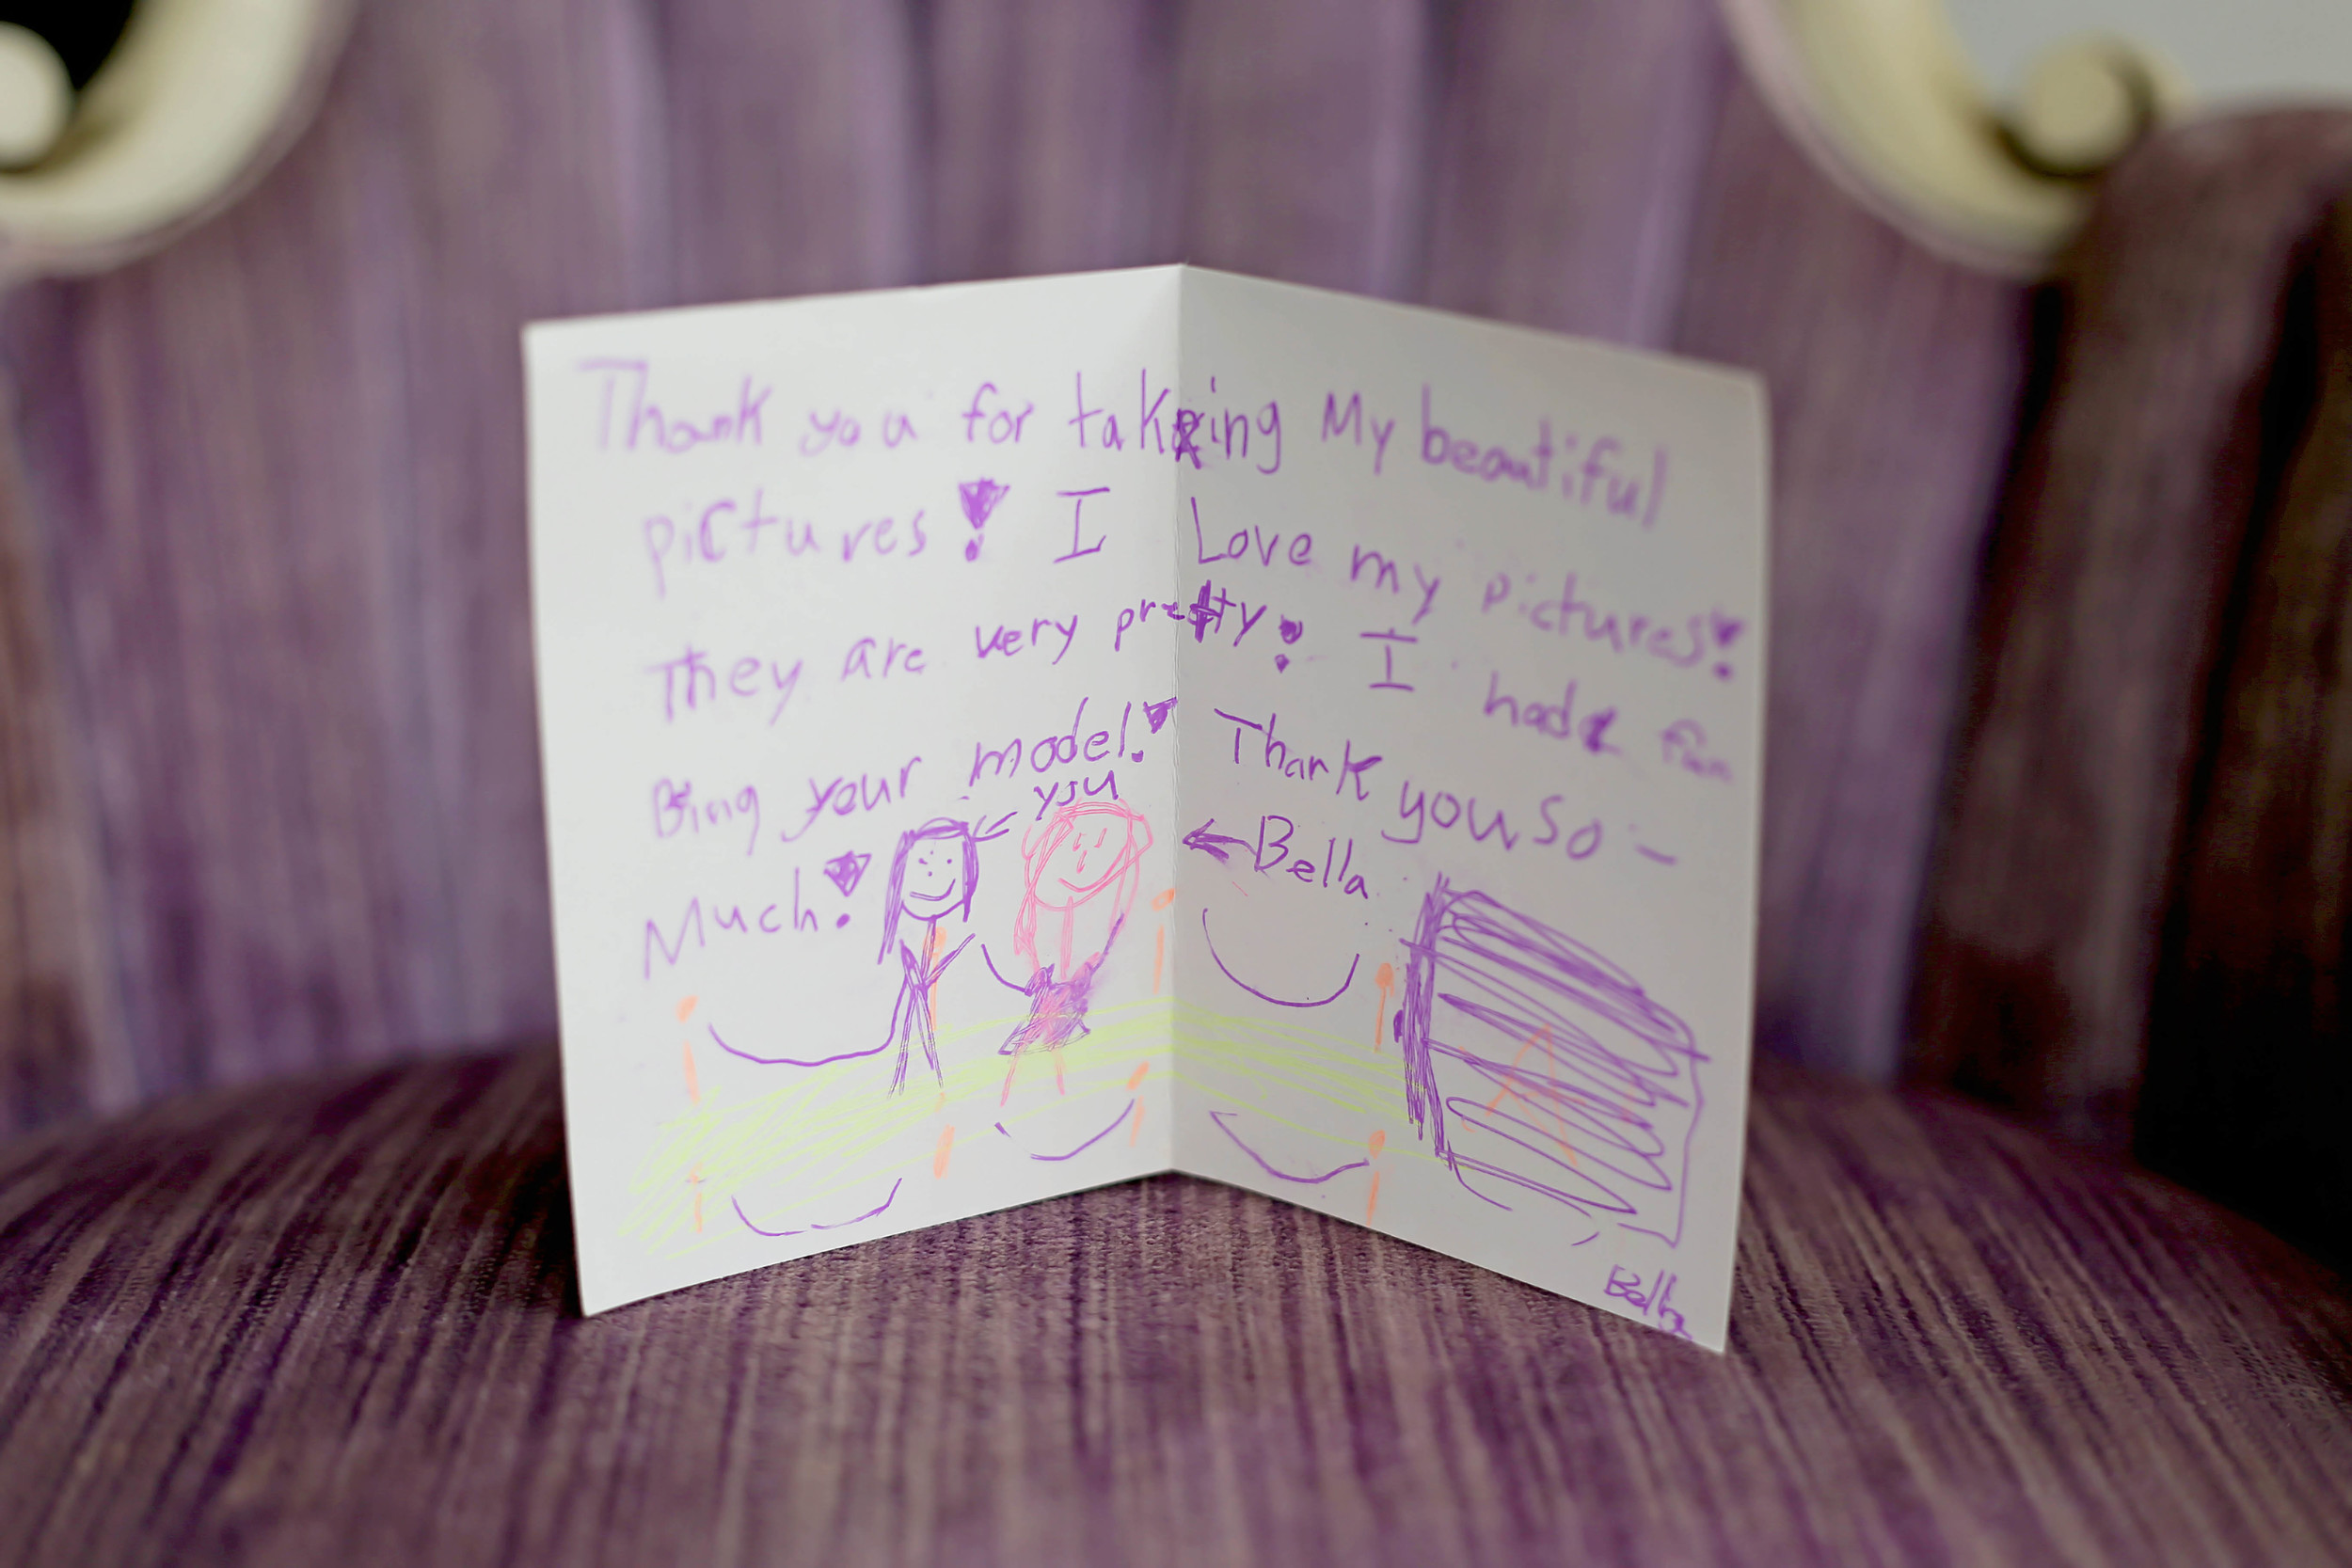 Thank you for taking My beautiful
pictures! I Love my pictures!
They are very pretty! I had fun
Bing your model! Thank you so -
Much!
you
Bella
Bella